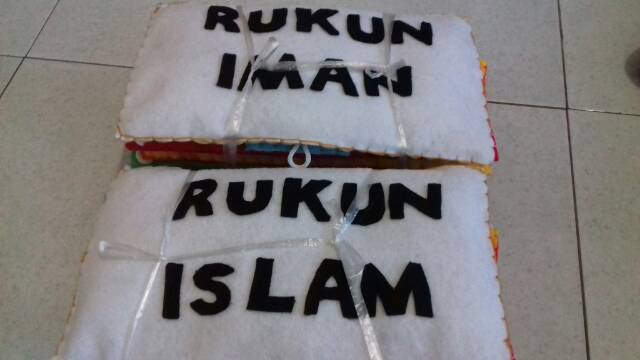 RUKUN
IMAN
RUKUN
ISLAM